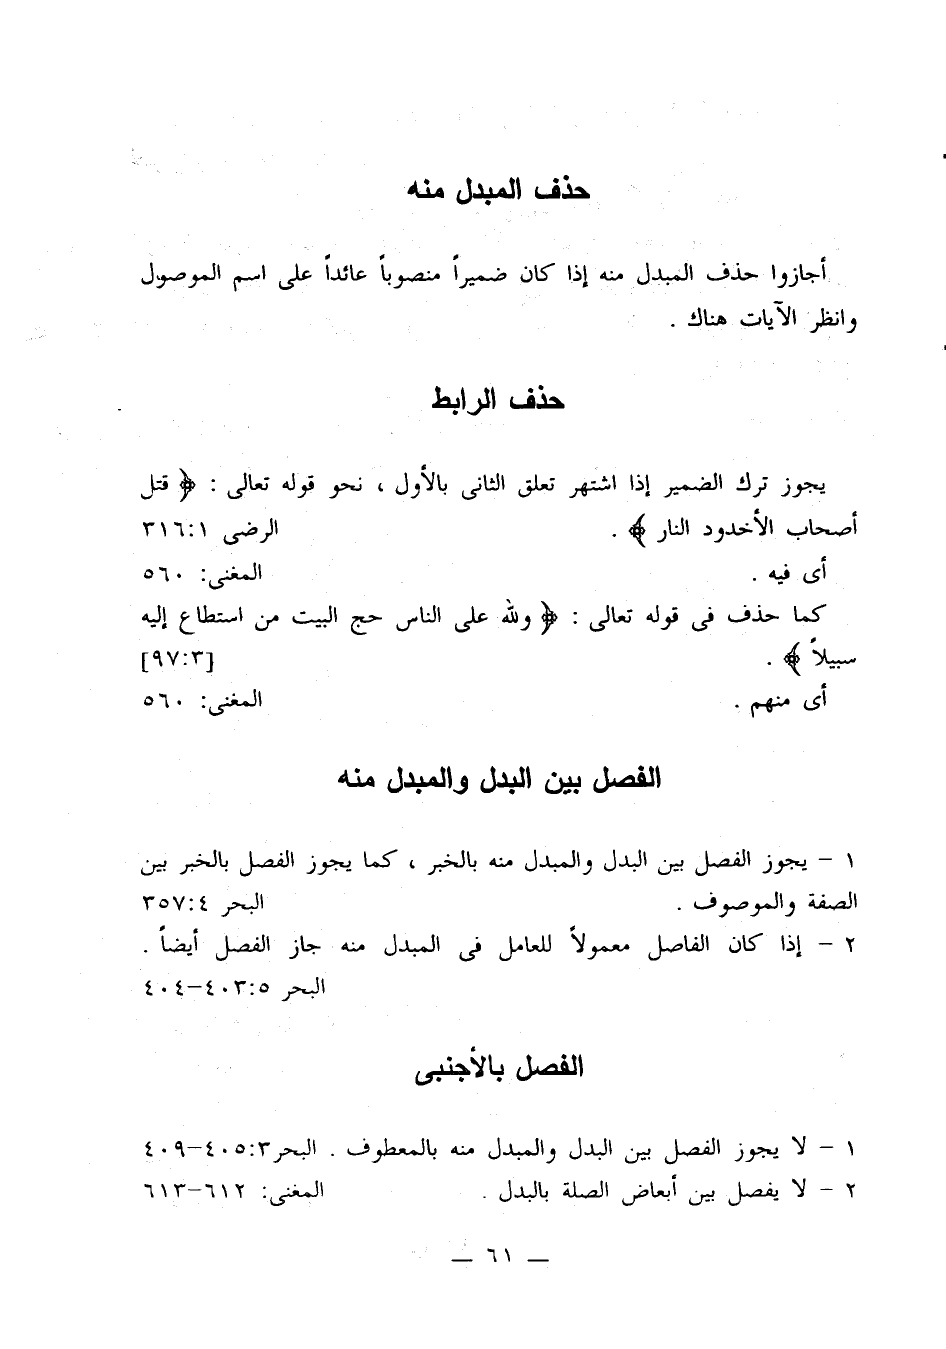 حذف المبدل منه
أجازوا حذف المبدل منه إذا كان ضميراً منصوباً عائداً على اسم الموصول
وانظر الآيات هناك .
حذف الرابط
يجوز ترك الضمير إذا اشتهر تعلق الثانى بالأول ، نحو قوله تعالى : ﴿ قتل
أصحاب الأخدود النار ﴾ . الرضى ٣١٦:١
أى فيه . المغنى: ٥٦٠
كما حذف فى قوله تعالى : ﴿ ولله على الناس حج البيت من استطاع إليه
سبيلاً ﴾ . [٩٧:٣]
أى منهم . المغنى: ٥٦٠
الفصل بين البدل والمبدل منه
١ – يجوز الفصل بين البدل والمبدل منه بالخبر ، كما يجوز الفصل بالخبر بين
الصفة والموصوف . البحر ٣٥٧:٤
٢ – إذا كان الفاصل معمولاً للعامل فى المبدل منه جاز الفصل أيضاً .
البحر ٤٠٣:٥–٤٠٤
الفصل بالأجنبى
١ – لا يجوز الفصل بين البدل والمبدل منه بالمعطوف . البحر٤٠٥:٣–٤٠٩
٢ – لا يفصل بين أبعاض الصلة بالبدل . المغنى: ٦١٢–٦١٣
— ٦١ —